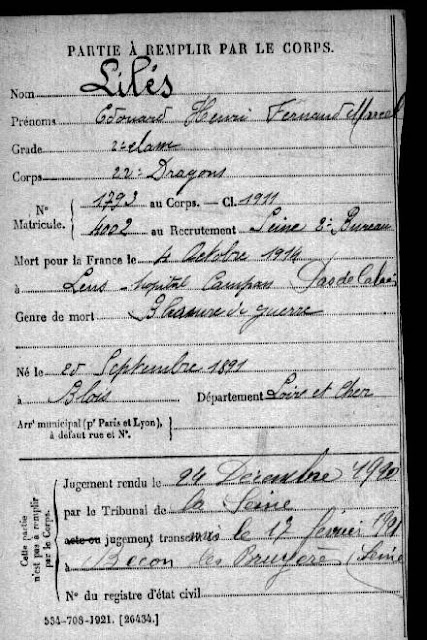 PARTIE À REMPLIR PAR LE CORPS.
Nom Lilés
Prénoms Edouard Henri Fernand Marcel
Grade 2e classe
Corps 22e Dragons
N° Matricule. { 1793 au Corps. — Cl. 1911
4002 au Recrutement Seine 2e Bureau
Mort pour la France le 4 Octobre 1914
à Lens hopital Campan Pas de Calais
Genre de mort Blessure de guerre
Né le Septembre 1891
à Blois Département Loir et Cher
Arr' municipal (p' Paris et Lyon),
à défaut rue et N°.
Cette partie n'est pas à remplir par le Corps.
Jugement rendu le 24 Décembre 1920
par le Tribunal de la Seine
acte ou jugement transcrit le 17 février 1921
à Bécon les Bruyère (Seine
N° du registre d'état civil
534-708-1921. [26434.]